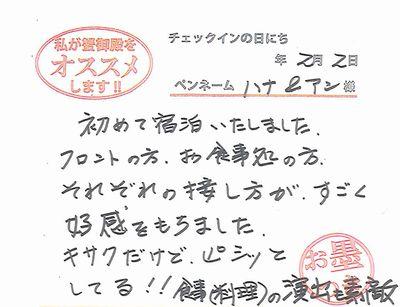 私が蟹御殿を
オススメ
します!!
チェックインの日にち
年 2月 2日
ペンネーム ハナ&アン 様
初めて宿泊いたしました.
フロントの方. お食事処の方.
それぞれの接し方が. すごく
好感をもちました.
キサクだけど. ピシッと
してる!! 食事(料理)の演出も素敵
お墨